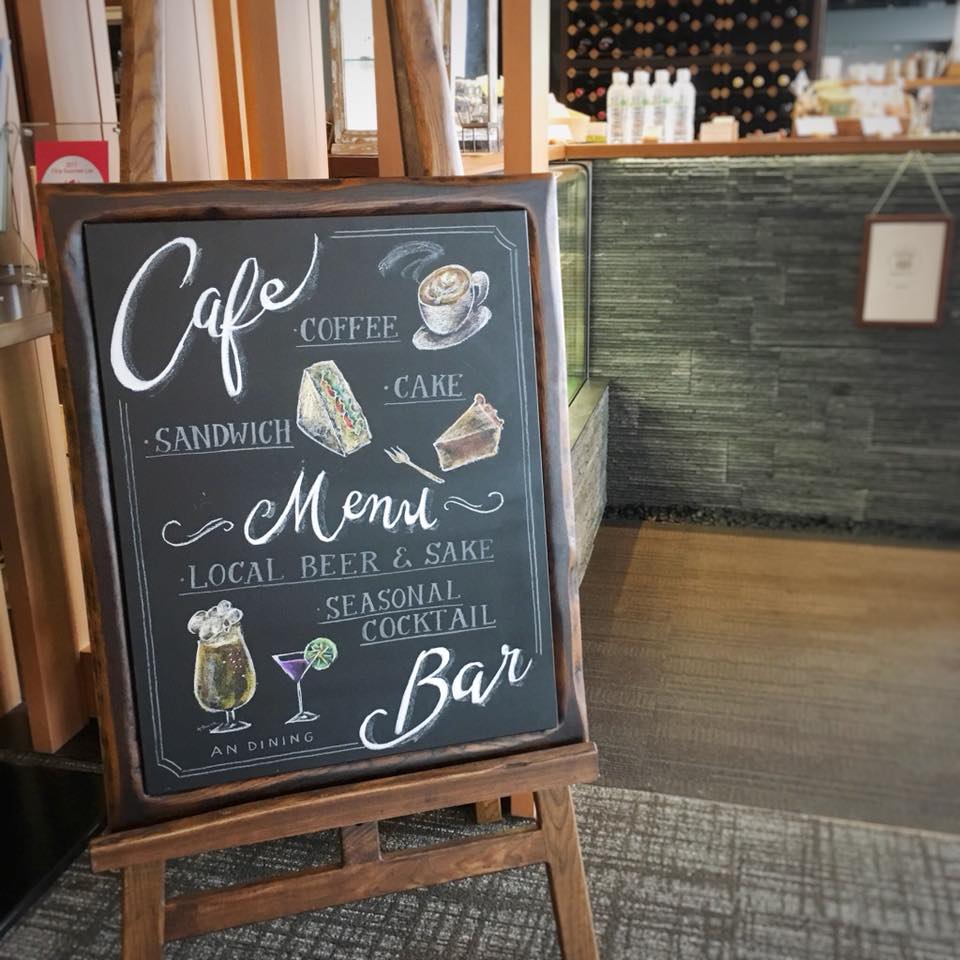 Cafe
· COFFEE
· CAKE
· SANDWICH
Menu
· LOCAL BEER & SAKE
· SEASONAL
COCKTAIL
Bar
AN DINING